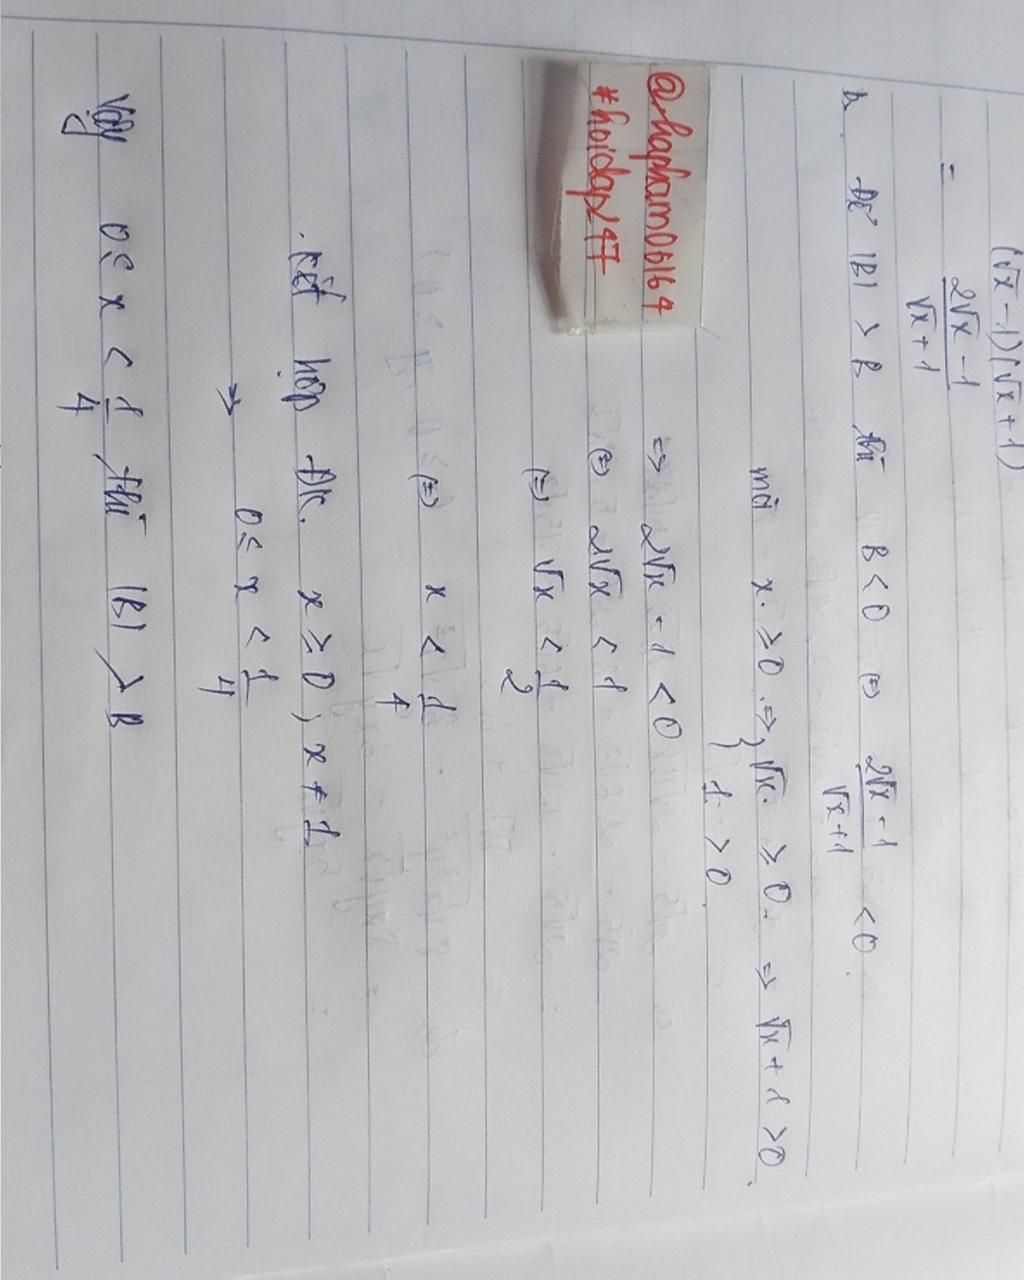 (√x - 1)(√x + 1)
= \frac{2√x - 1}{√x + 1}
b. Để |B| > B thì B < 0 (=) \frac{2√x - 1}{√x + 1} < 0.
mà x ≥ 0 => { √x ≥ 0. => √x + 1 > 0.
1 > 0.
@nhapham06164
#hoidap247
=> 2√x - 1 < 0
(=) 2√x < 1
(=) √x < \frac{1}{2}
(=) x < \frac{1}{4}
. kết hợp ĐK. x ≥ 0 , x ≠ 1
=> 0 ≤ x < \frac{1}{4}
Vậy 0 ≤ x < \frac{1}{4} thì |B| > B